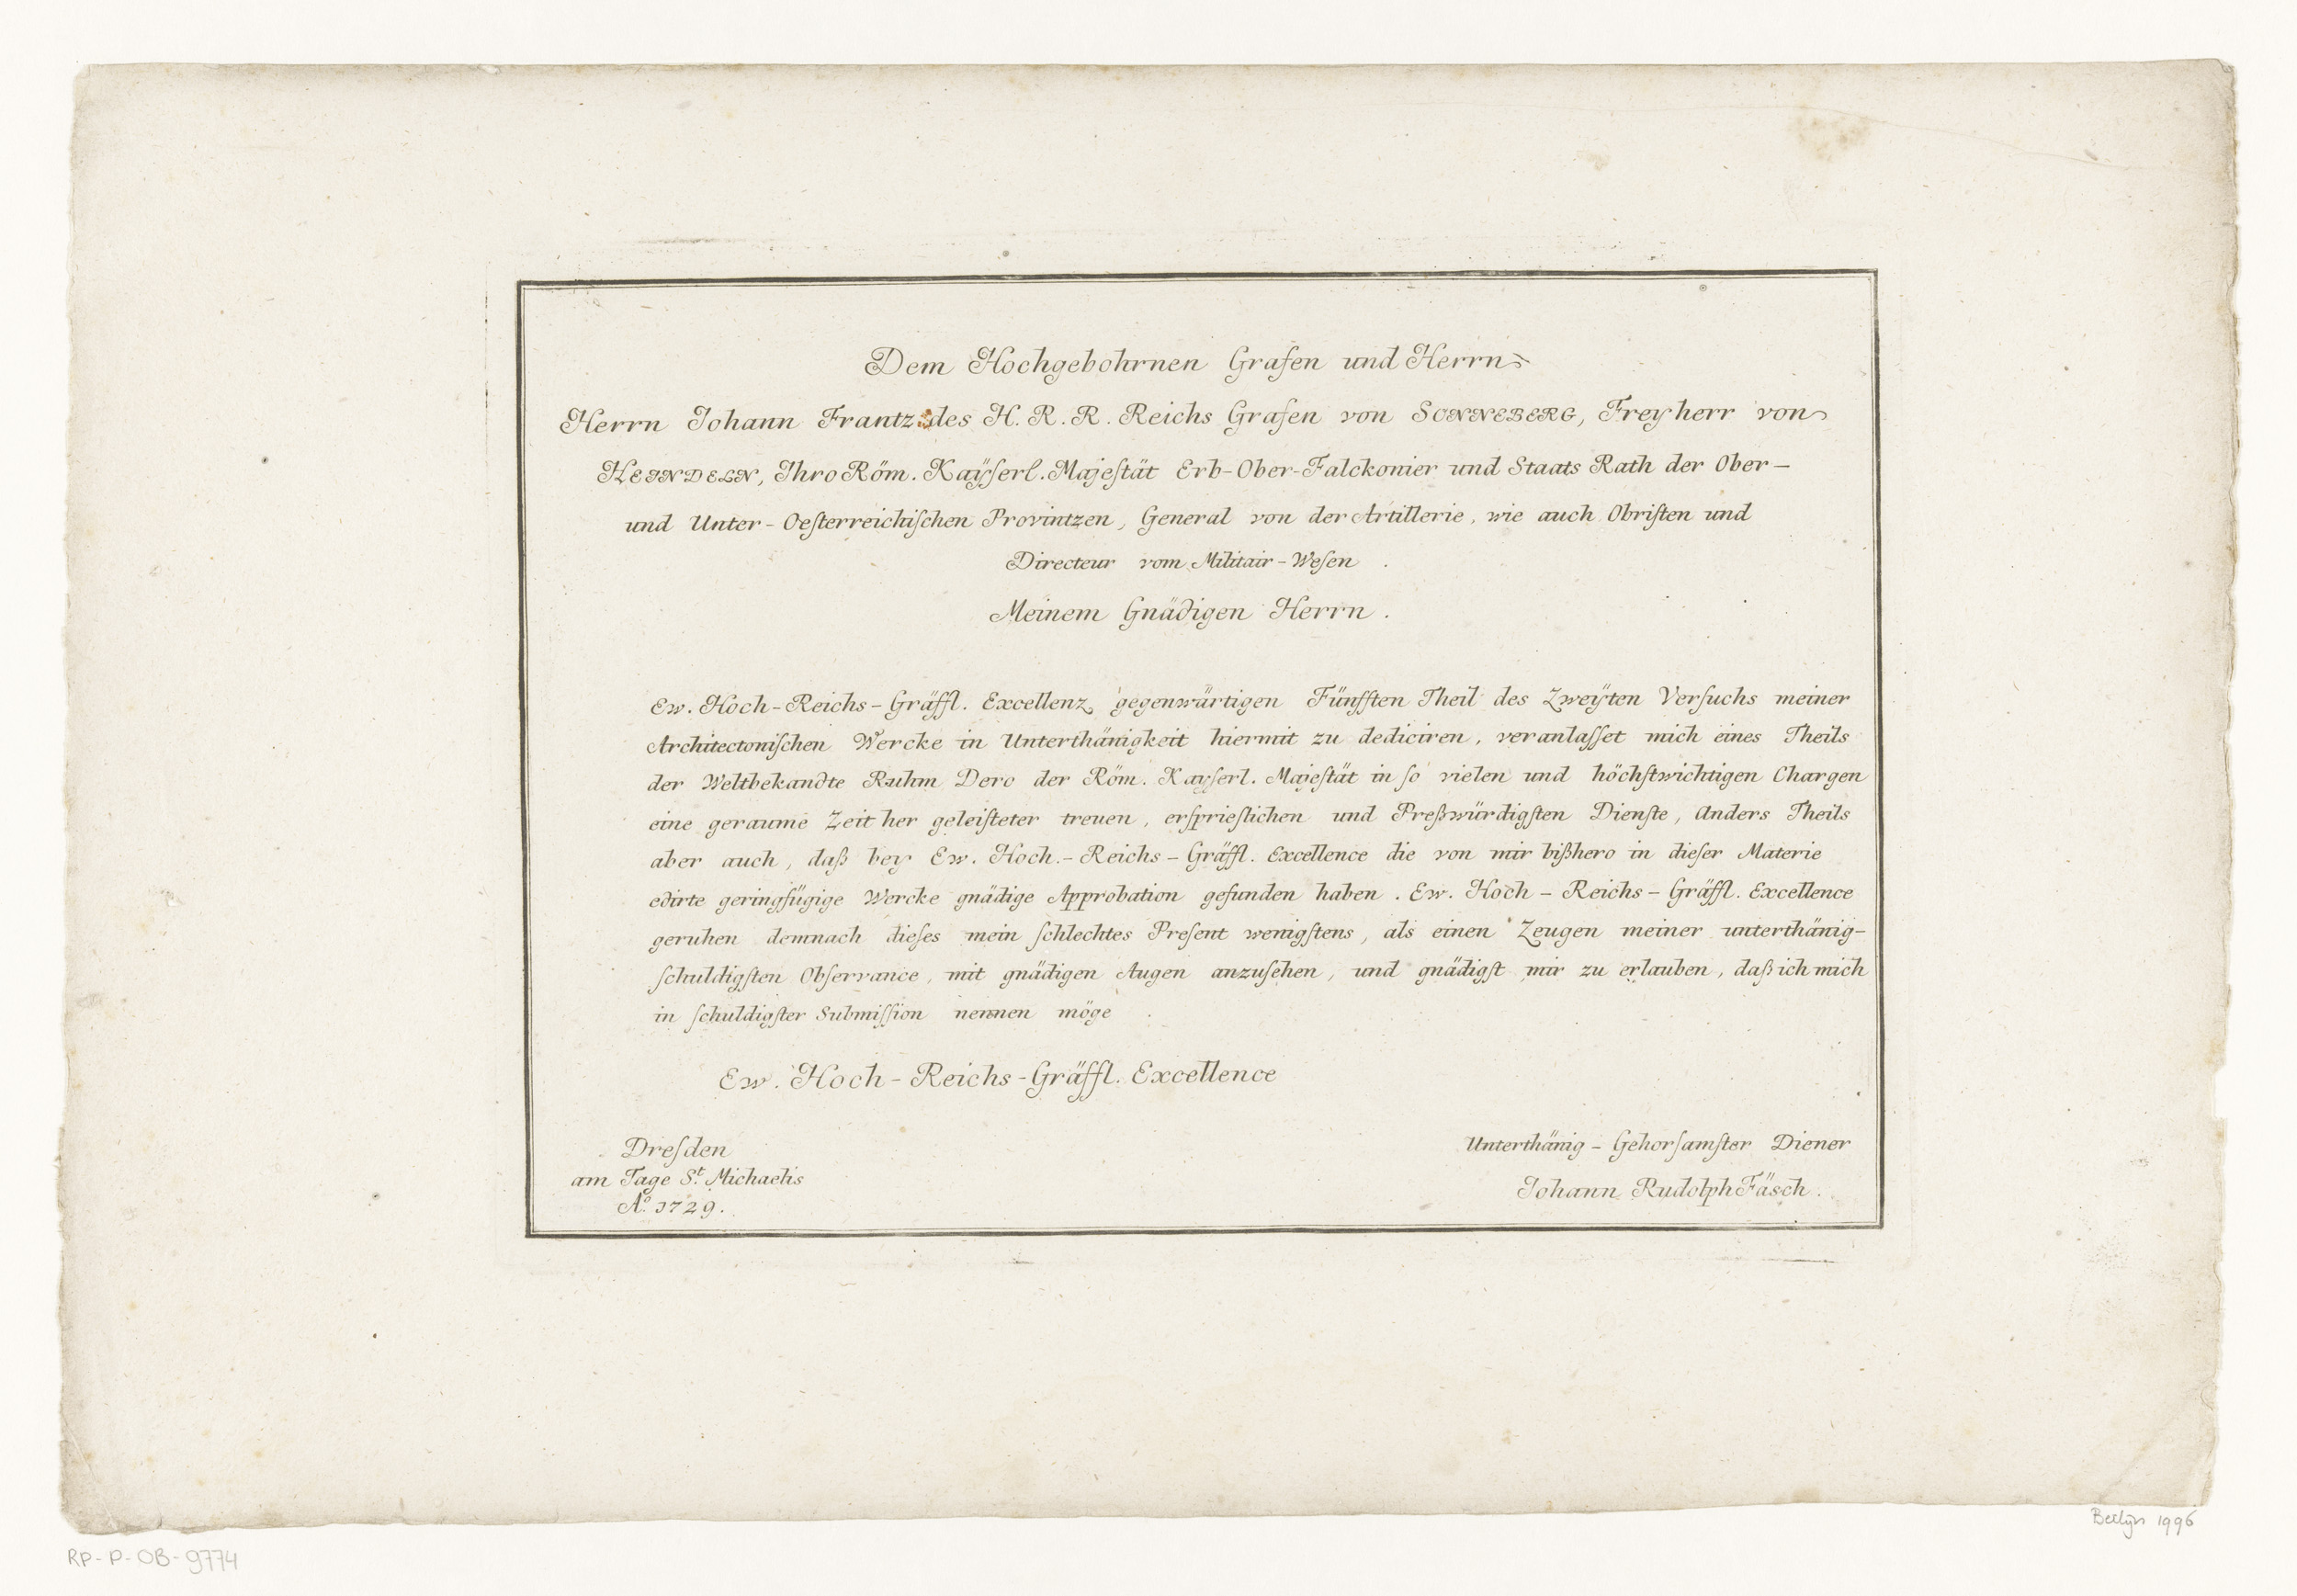 Dem Hochgebohrnen Grafen und Herrn
Herrn Johann Frantz des H. R. R. Reichs Grafen von SONNEBERG, Freyherr von
HEINDELN, Ihro Röm. Kaÿſerl. Majeſtät Erb-Ober-Falckonier und Staats Rath der Ober-
und Unter-Oeſterreichiſchen Provintzen, General von der Artillerie, wie auch Obriſten und
Directeur vom Militair-Weſen.
Meinem Gnädigen Herrn.
Ew. Hoch-Reichs-Gräffl. Excellenz gegenwärtigen Fünfften Theil des Zweÿten Verſuchs meiner
Architectoniſchen Wercke in Unterthänigkeit hiermit zu dediciren, veranlaſſet mich eines Theils
der Weltbekandte Ruhm Dero der Röm. Kayſerl. Majeſtät in ſo vielen und höchſtwichtigen Chargen
eine geraume Zeit her geleiſteter treuen, erſprieſlichen und Preßwürdigſten Dienſte, Anders Theils
aber auch, daß bey Ew. Hoch.-Reichs-Gräffl. Excellence die von mir bißhero in dieſer Materie
edirte geringfügige Wercke gnädige Approbation gefunden haben. Ew. Hoch-Reichs-Gräffl. Excellence
geruhen demnach dieſes mein ſchlechtes Preſent wenigſtens, als einen Zeugen meiner unterthänig-
ſchuldigſten Obſervance, mit gnädigen Augen anzuſehen, und gnädigſt mir zu erlauben, daß ich mich
in ſchuldigſter Submiſſion nennen möge.
Ew. Hoch-Reichs-Gräffl. Excellence
Dreſden
am Tage St. Michaelis
Ao. 1729.
Unterthänig-Gehorſamſter Diener
Johann Rudolph Fäsch.
RP-P-OB-9774
1996